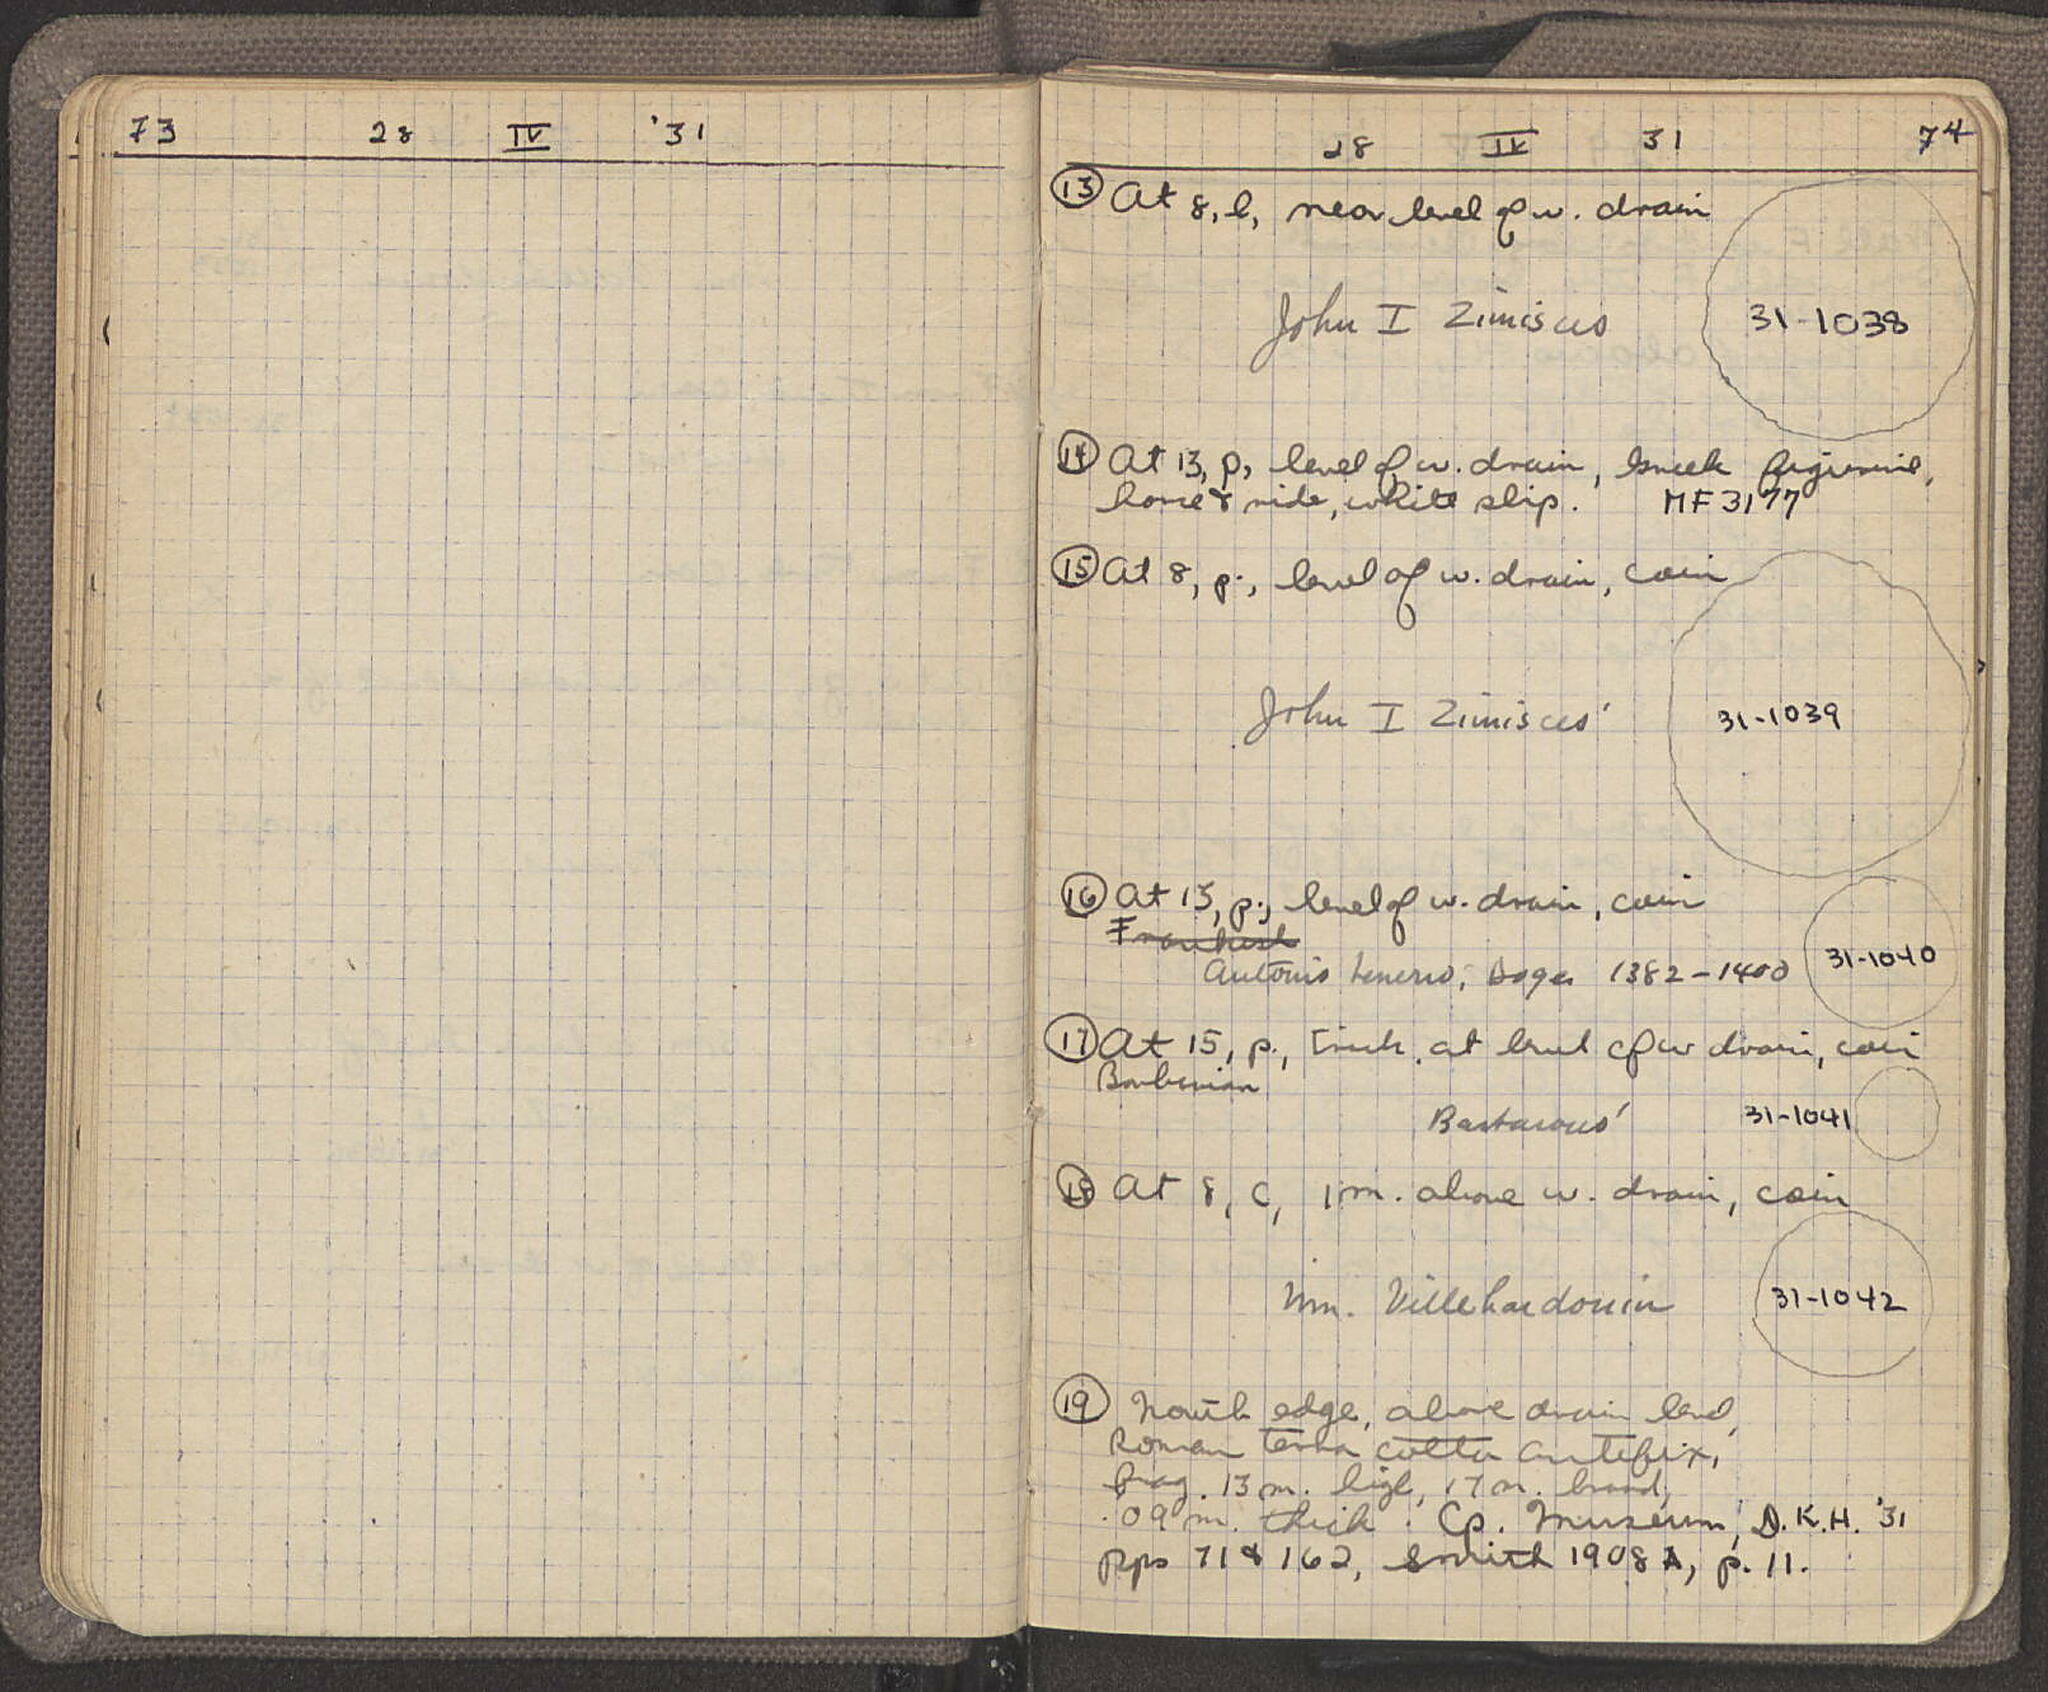 73 28 IV '31
28 IV 31 74
13 At 8, l, near level of w. drain
John I Zimisces 31-1038
14 At 13, p, level of w. drain, Greek figurine,
horse & rider, white slip. MF 3177
15 At 8, p., level of w. drain, coin
John I Zimisces 31-1039
16 At 13, p., level of w. drain, coin
Frankish
Antonio Venerio, Doge 1382-1400 31-1040
17 At 15, p., at level of w drain, coin
Barbarous 31-1041
18 At 8, c, 1 m. above w. drain, coin
Wm. Villehardouin 31-1042
19 North edge, above drain level,
Roman terra cotta antefix,
frag .13 m. high, .17 m. broad,
.09 m. thick. Cp. Museum, D.K.H. '31
pps 71 & 162, Smith 1908 A, p. 11.